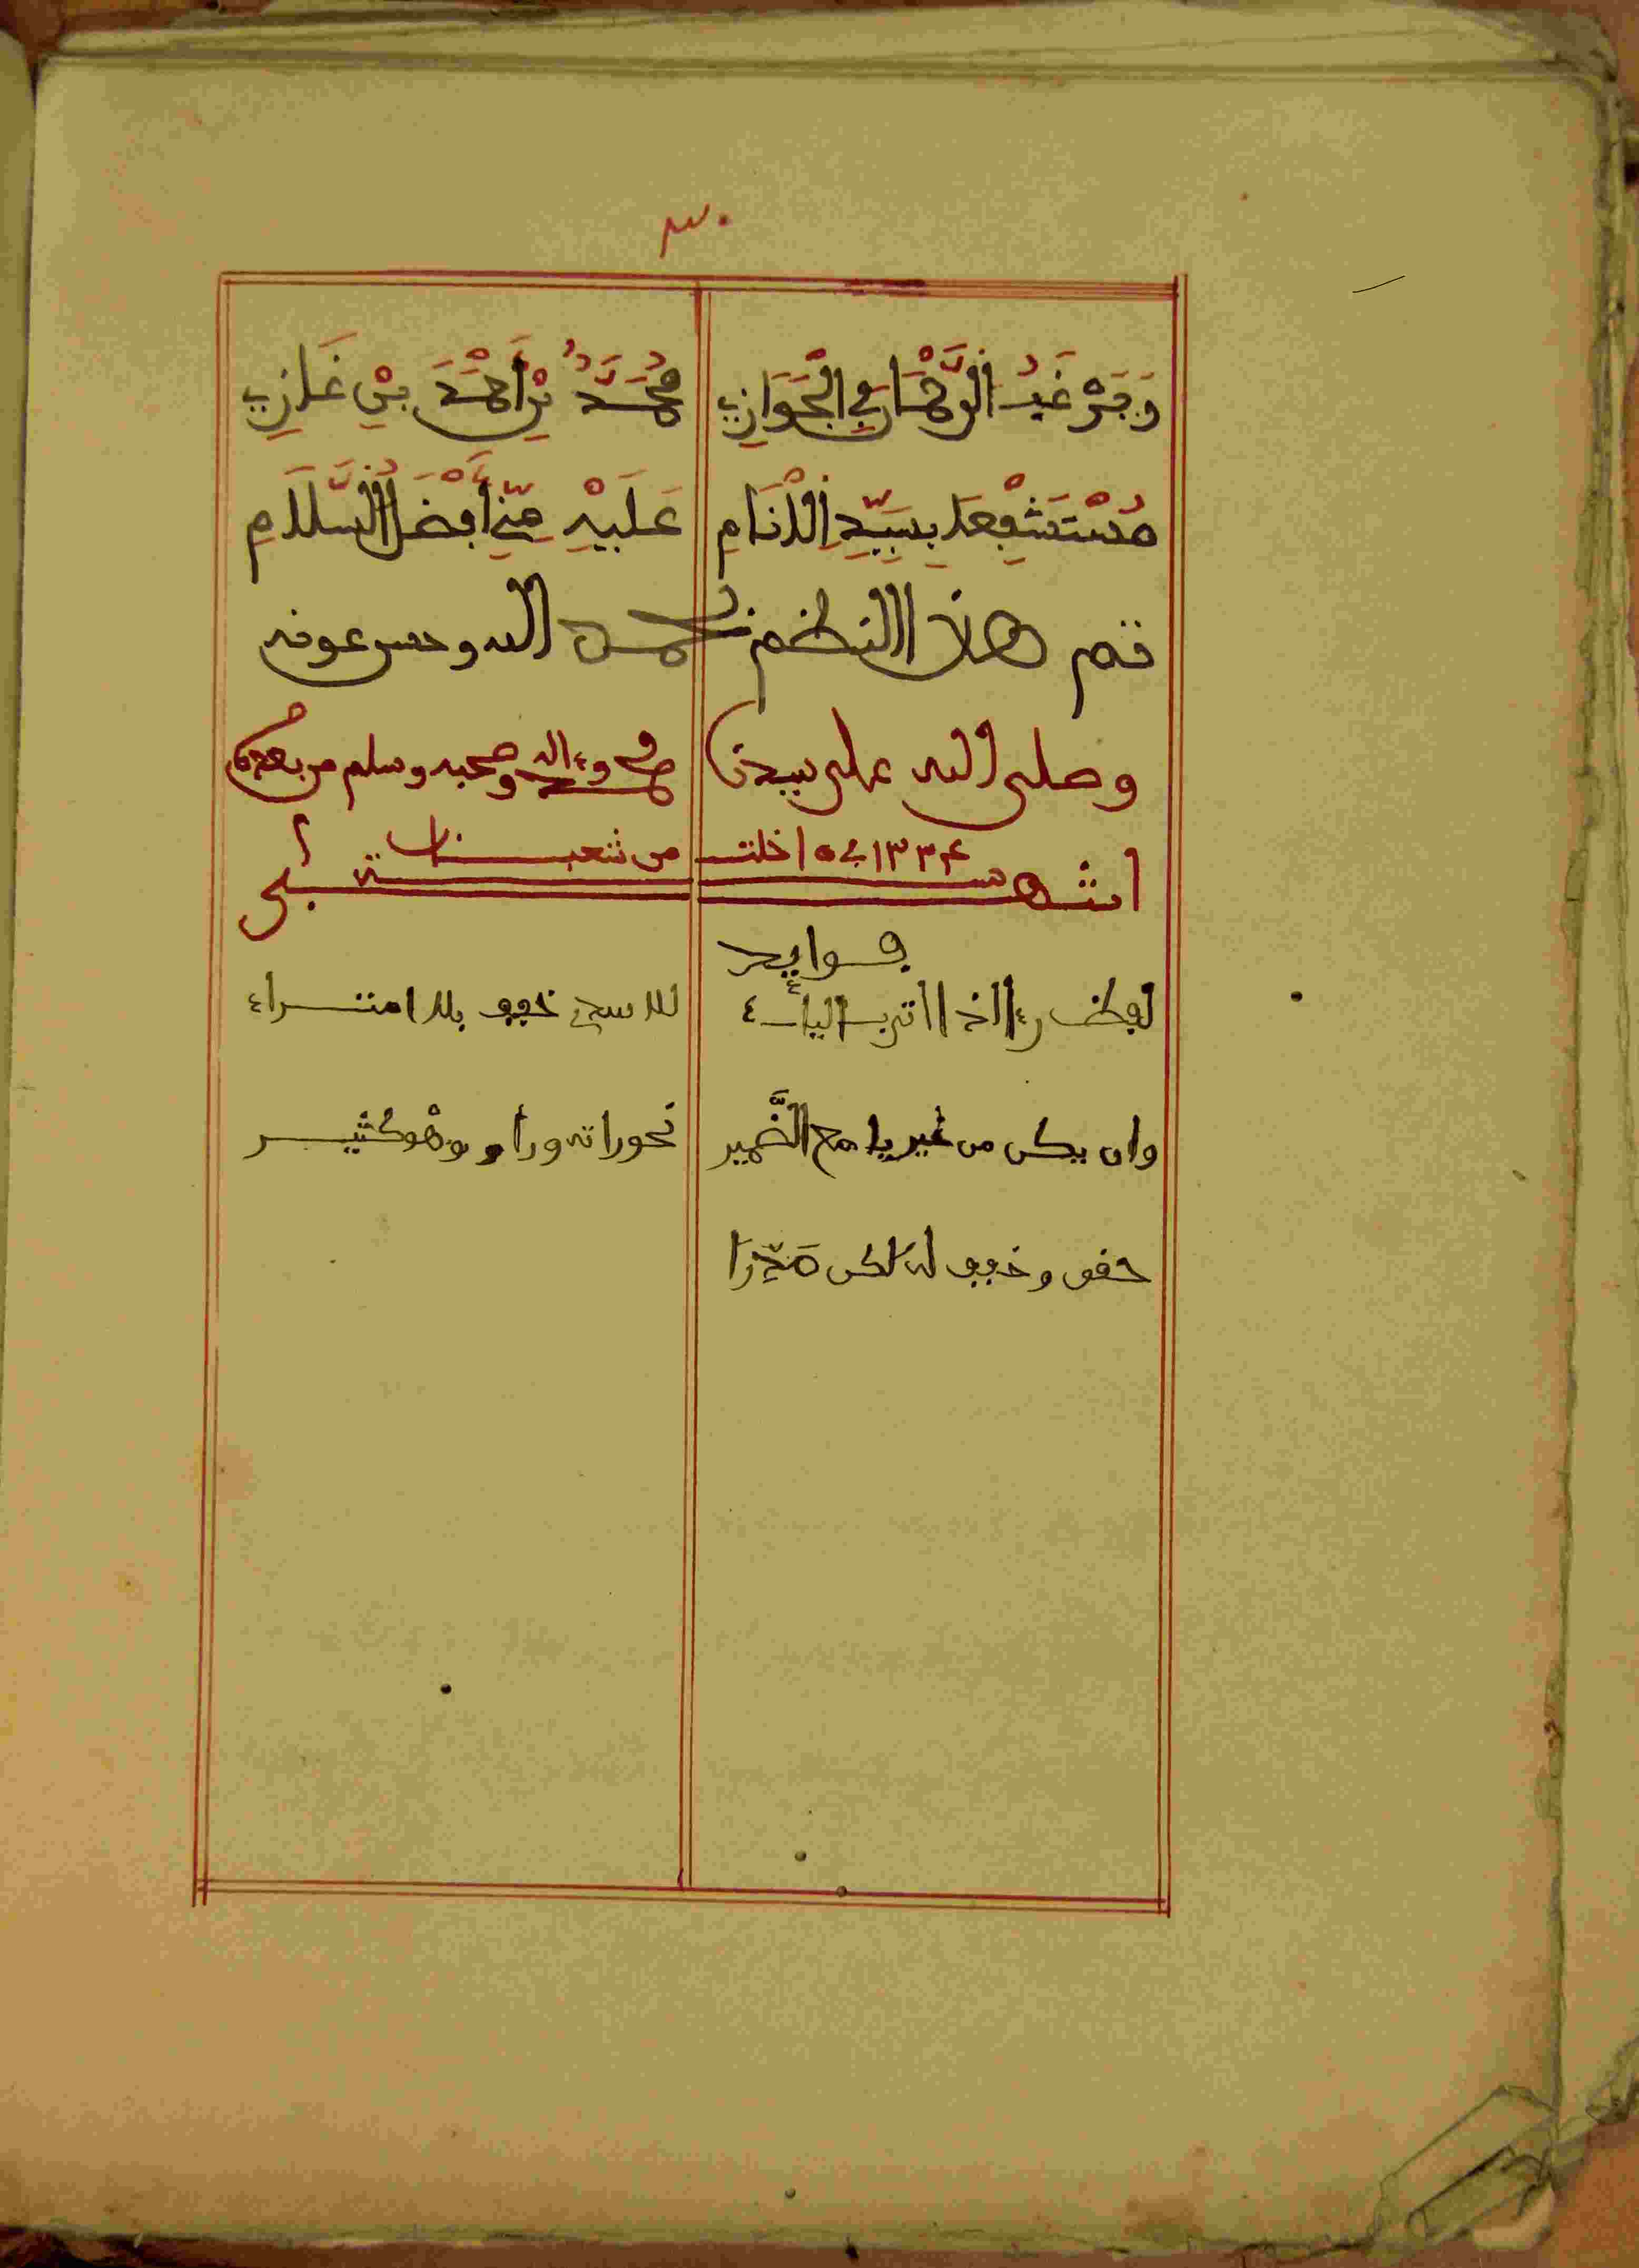 ٣٠
وَفَيْ عَبْدُ الرَّحْمَانِ فِي الْجَوَازِ مُحَمَّدُ بْنُ أَحْمَدَ بْنِ غَازِ
مُسْتَشْفِعًا بِسَيِّدِ الْأَنَامِ عَلَيْهِ مِنِّي أَفْضَلُ السَّلَامِ
تم هذا النظم بحمد الله وحسن عونه
وصلى الله على سيدنا محمد وءاله وصحبه وسلم من
١٣٣٤ في ١٥ خلت من شعبان
انتهى
فوايد
لفظ رءا اذا اتى باليا ء للاسم خفف بلا امتراء
وان يكن من غير يا مع الضَّمير نحو راته ورا وهْو كثير
حقق وخفف له لكن